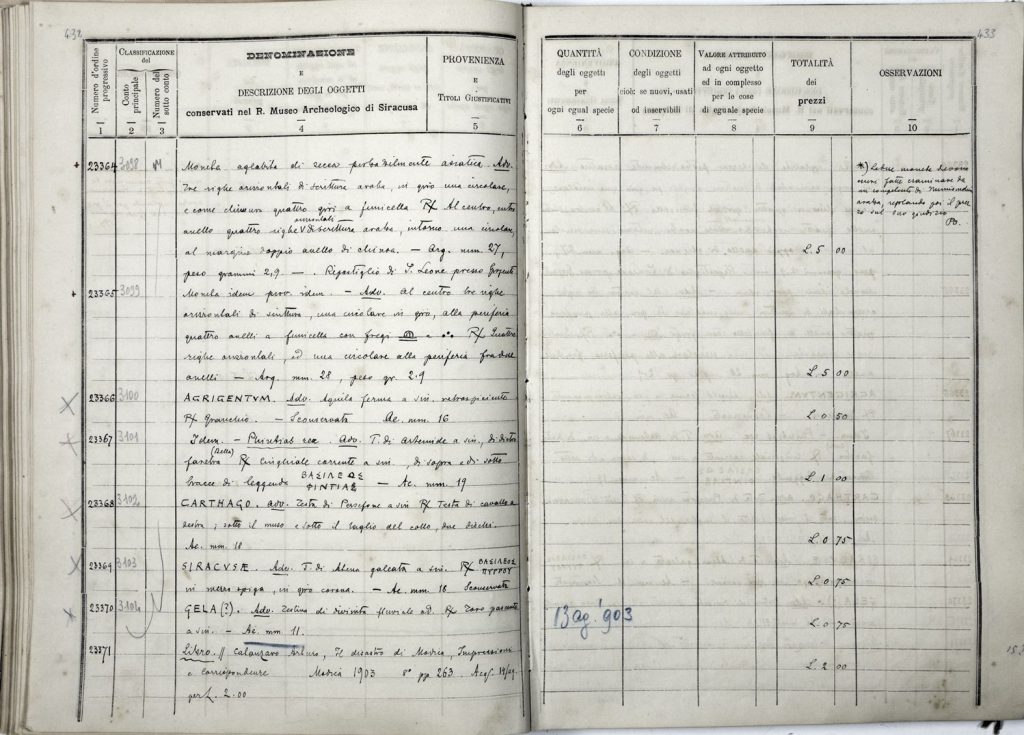 432
Numero d'ordine progressivo
Classificazione del
Conto principale
Numero del sotto conto
DENOMINAZIONE
E
DESCRIZIONE DEGLI OGGETTI
conservati nel R. Museo Archeologico di Siracusa
PROVENIENZA
E
Titoli Giustificativi
1 2 3 4 5
+ 23364 3098 Moneta aglabita di zecca probabilmente asiatica. Adv.
Tre righe orizzontali di scrittura araba, in giro una circolare,
e come chiusura quattro giri a funicella R/ Al centro, entro
anello quattro righe V di scrittura araba, intorno una circolare,
orizzontali
al margine doppio anello di chiusa. — Arg. mm. 27,
peso grammi 2,9 — . Ripostiglio di S. Leone presso Girgenti
+ 23365 3099 Moneta idem prov. idem. — Adv. Al centro tre righe
orizzontali di scrittura, una circolare in giro, alla periferia
quattro anelli a funicella con fregi R/ Quattro
righe orizzontali, ed una circolare alla periferia fra due
anelli — Arg. mm. 28, peso gr. 2.9
X 23366 3100 AGRIGENTVM. Adv. Aquila ferma a sin. retrospiciente
R/ Granchio. — Sconservata Ae. mm. 16
X 23367 3101 Idem. — Phintias rex. Adv. T. di Artemide a sin., di dietro
faretra (della) R/ Cinghiale corrente a sin., di sopra e di sotto
tracce di leggenda ΒΑΣΙΛΕΩΣ ΦΙΝΤΙΑΣ — Ae. mm. 19
X 23368 3102 CARTHAGO. Adv. Testa di Persefone a sin R/ Testa di cavallo a
destra; sotto il muso e sotto il taglio del collo, due dischi.
Ae. mm. 18
X 23369 3103 SIRACVSÆ. Adv. T. di Atena galeata a sin. R/ ΒΑΣΙΛΕΟΣ ΠΥΡΡΟΥ
in mezzo spiga, in giro corona. — Ae. mm. 18 Sconservata
X 23370 3104 GELA (?). Adv. Testina di divinità fluviale a d. R/ Toro paziente
a sin. — Ae. mm. 11.
23371 Libro // Catanzaro Arturo, Il disastro di Modica, Impressioni
e Corrispondenze Modica 1903 8° pp. 263. Acq.
per L. 2.00
433
QUANTITÀ
degli oggetti
per
ogni egual specie
6
CONDIZIONE
degli oggetti
cioè: se nuovi, usati
od inservibili
7
Valore attribuito
ad ogni oggetto
ed in complesso
per le cose
di eguale specie
8
TOTALITÀ
dei
prezzi
9
OSSERVAZIONI
10
monete devono
essere fatte esaminare da
un competente di Numismatica
araba, riportando poi il prez-
zo sul suo giudizio
L. 5 00
L. 5 00
L. 0 50
L. 1 00
L. 0 75
L. 0 75
13 ag. 903
L. 0 75
L. 2 00